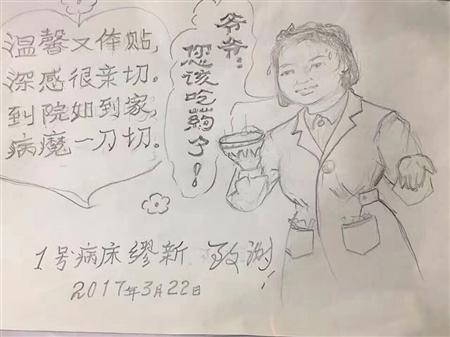 温馨又体贴,
深感很亲切。
到院如到家,
病魔一刀切。
爷爷:
您该吃药了!
1号病床缪新 致谢
2017年3月22日